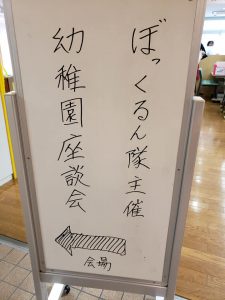 ぼっくるん隊主催
幼稚園座談会
会場